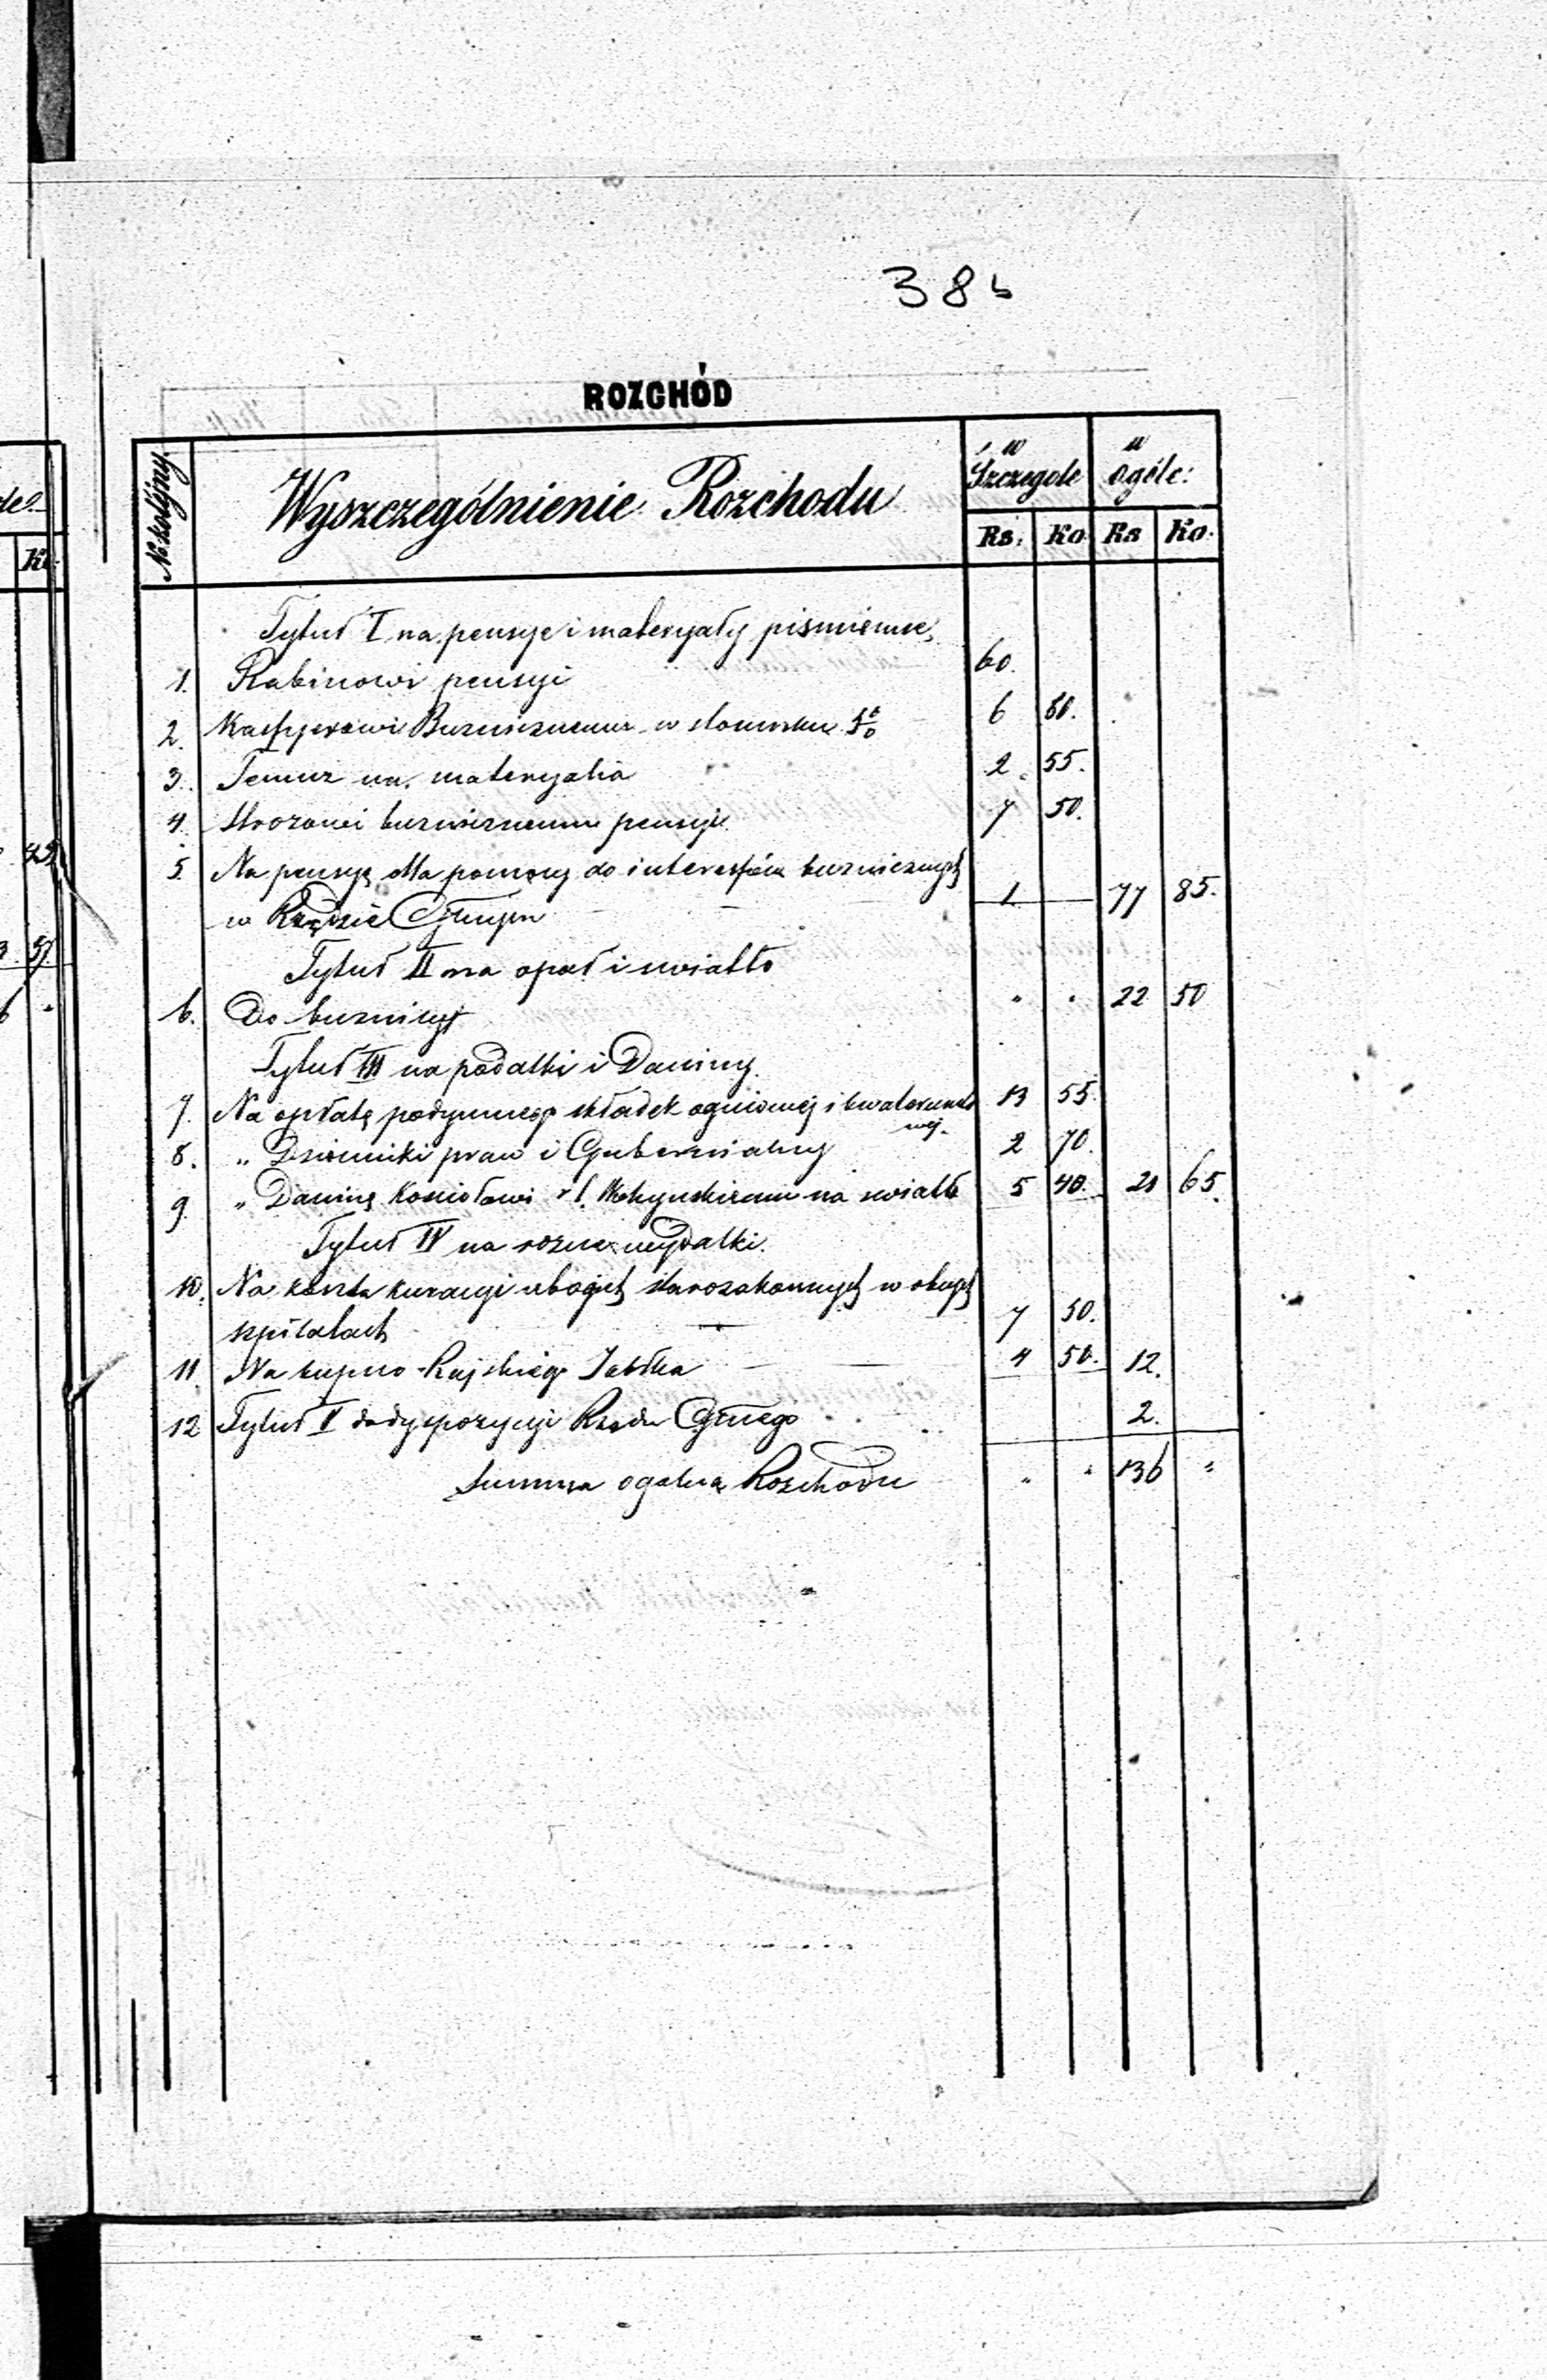 38b
ROZCHÓD
No kolejny Wyszczególnienie Rozchodu w Szczególe w ogóle:
Rs: Ko Rs Ko.
Tytuł I na pensye i materyały piśmienne,
1. Rabinowi pensyi 60.
2. Kassyerowi Bużnicznemu w stosunku 6 80.
3. Temuż na materyalia 2 55.
4. Stróżowi bużnicznemu pensyi 7 50.
5. Na pensyę dla pomocy do interessów bużnicznych
w Rządzie 1 — 77 85.
Tytuł II na opał i swiatło
6. Do bużnicy " " 22 50
Tytuł III na podatki i Daniny.
7. Na opłatę podymnego składek ogniowej i kwaterunko
wej. 13 55
8. " Dzienniki praw i Gubernialny 2 70.
9. " Daninę Kościołowi na swiatło 5 40. 21 65.
Tytuł IV na rożne wydatki.
10. Na koszta kuracyi ubogich starozakonnych w obcych
szpitalach 7 50.
11 Na kupno Rajskiego Jabłka 4 50. 12.
12 Tytuł V do dyspozycyi Rządu 2.
Summa ogólna Rozchodu " " 136 "